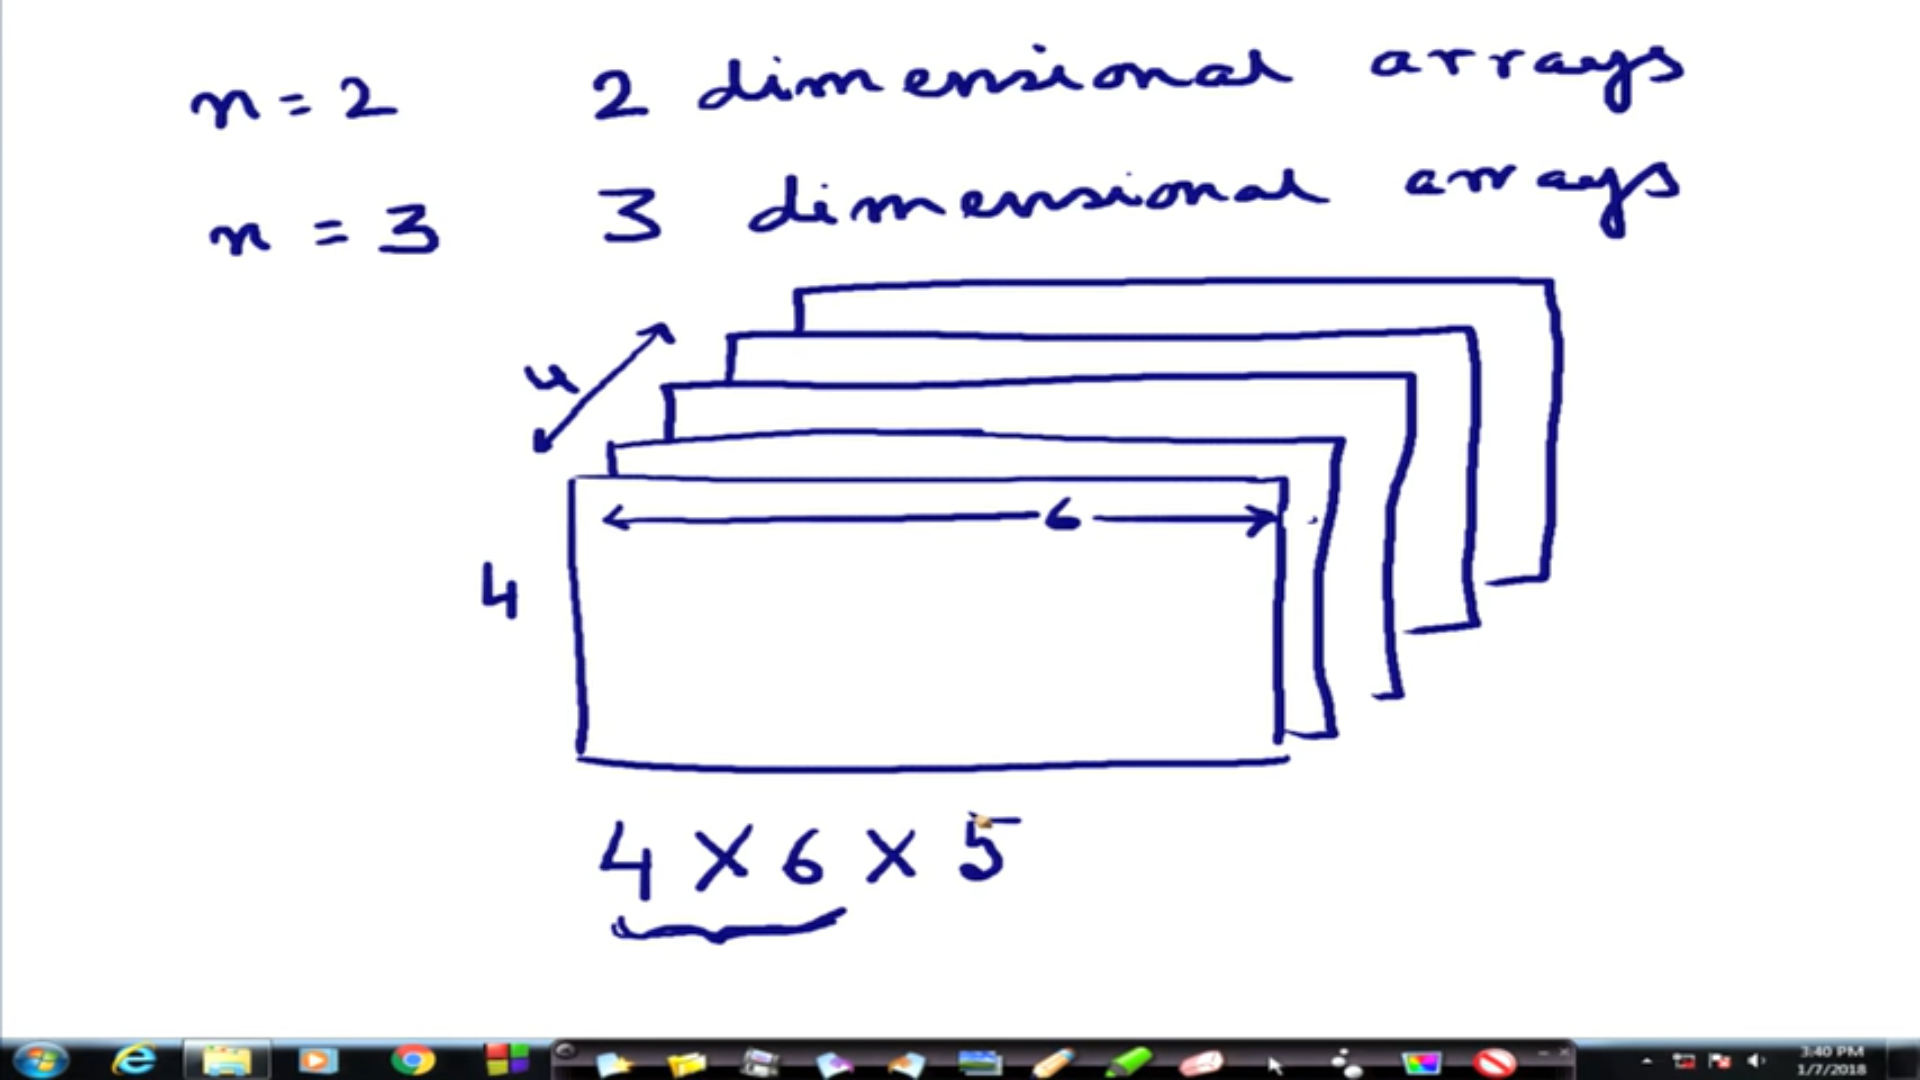 n = 2 2 dimensional arrays
n = 3 3 dimensional arrays
6
4
4 X 6 X 5
3:40 PM
1/7/2018